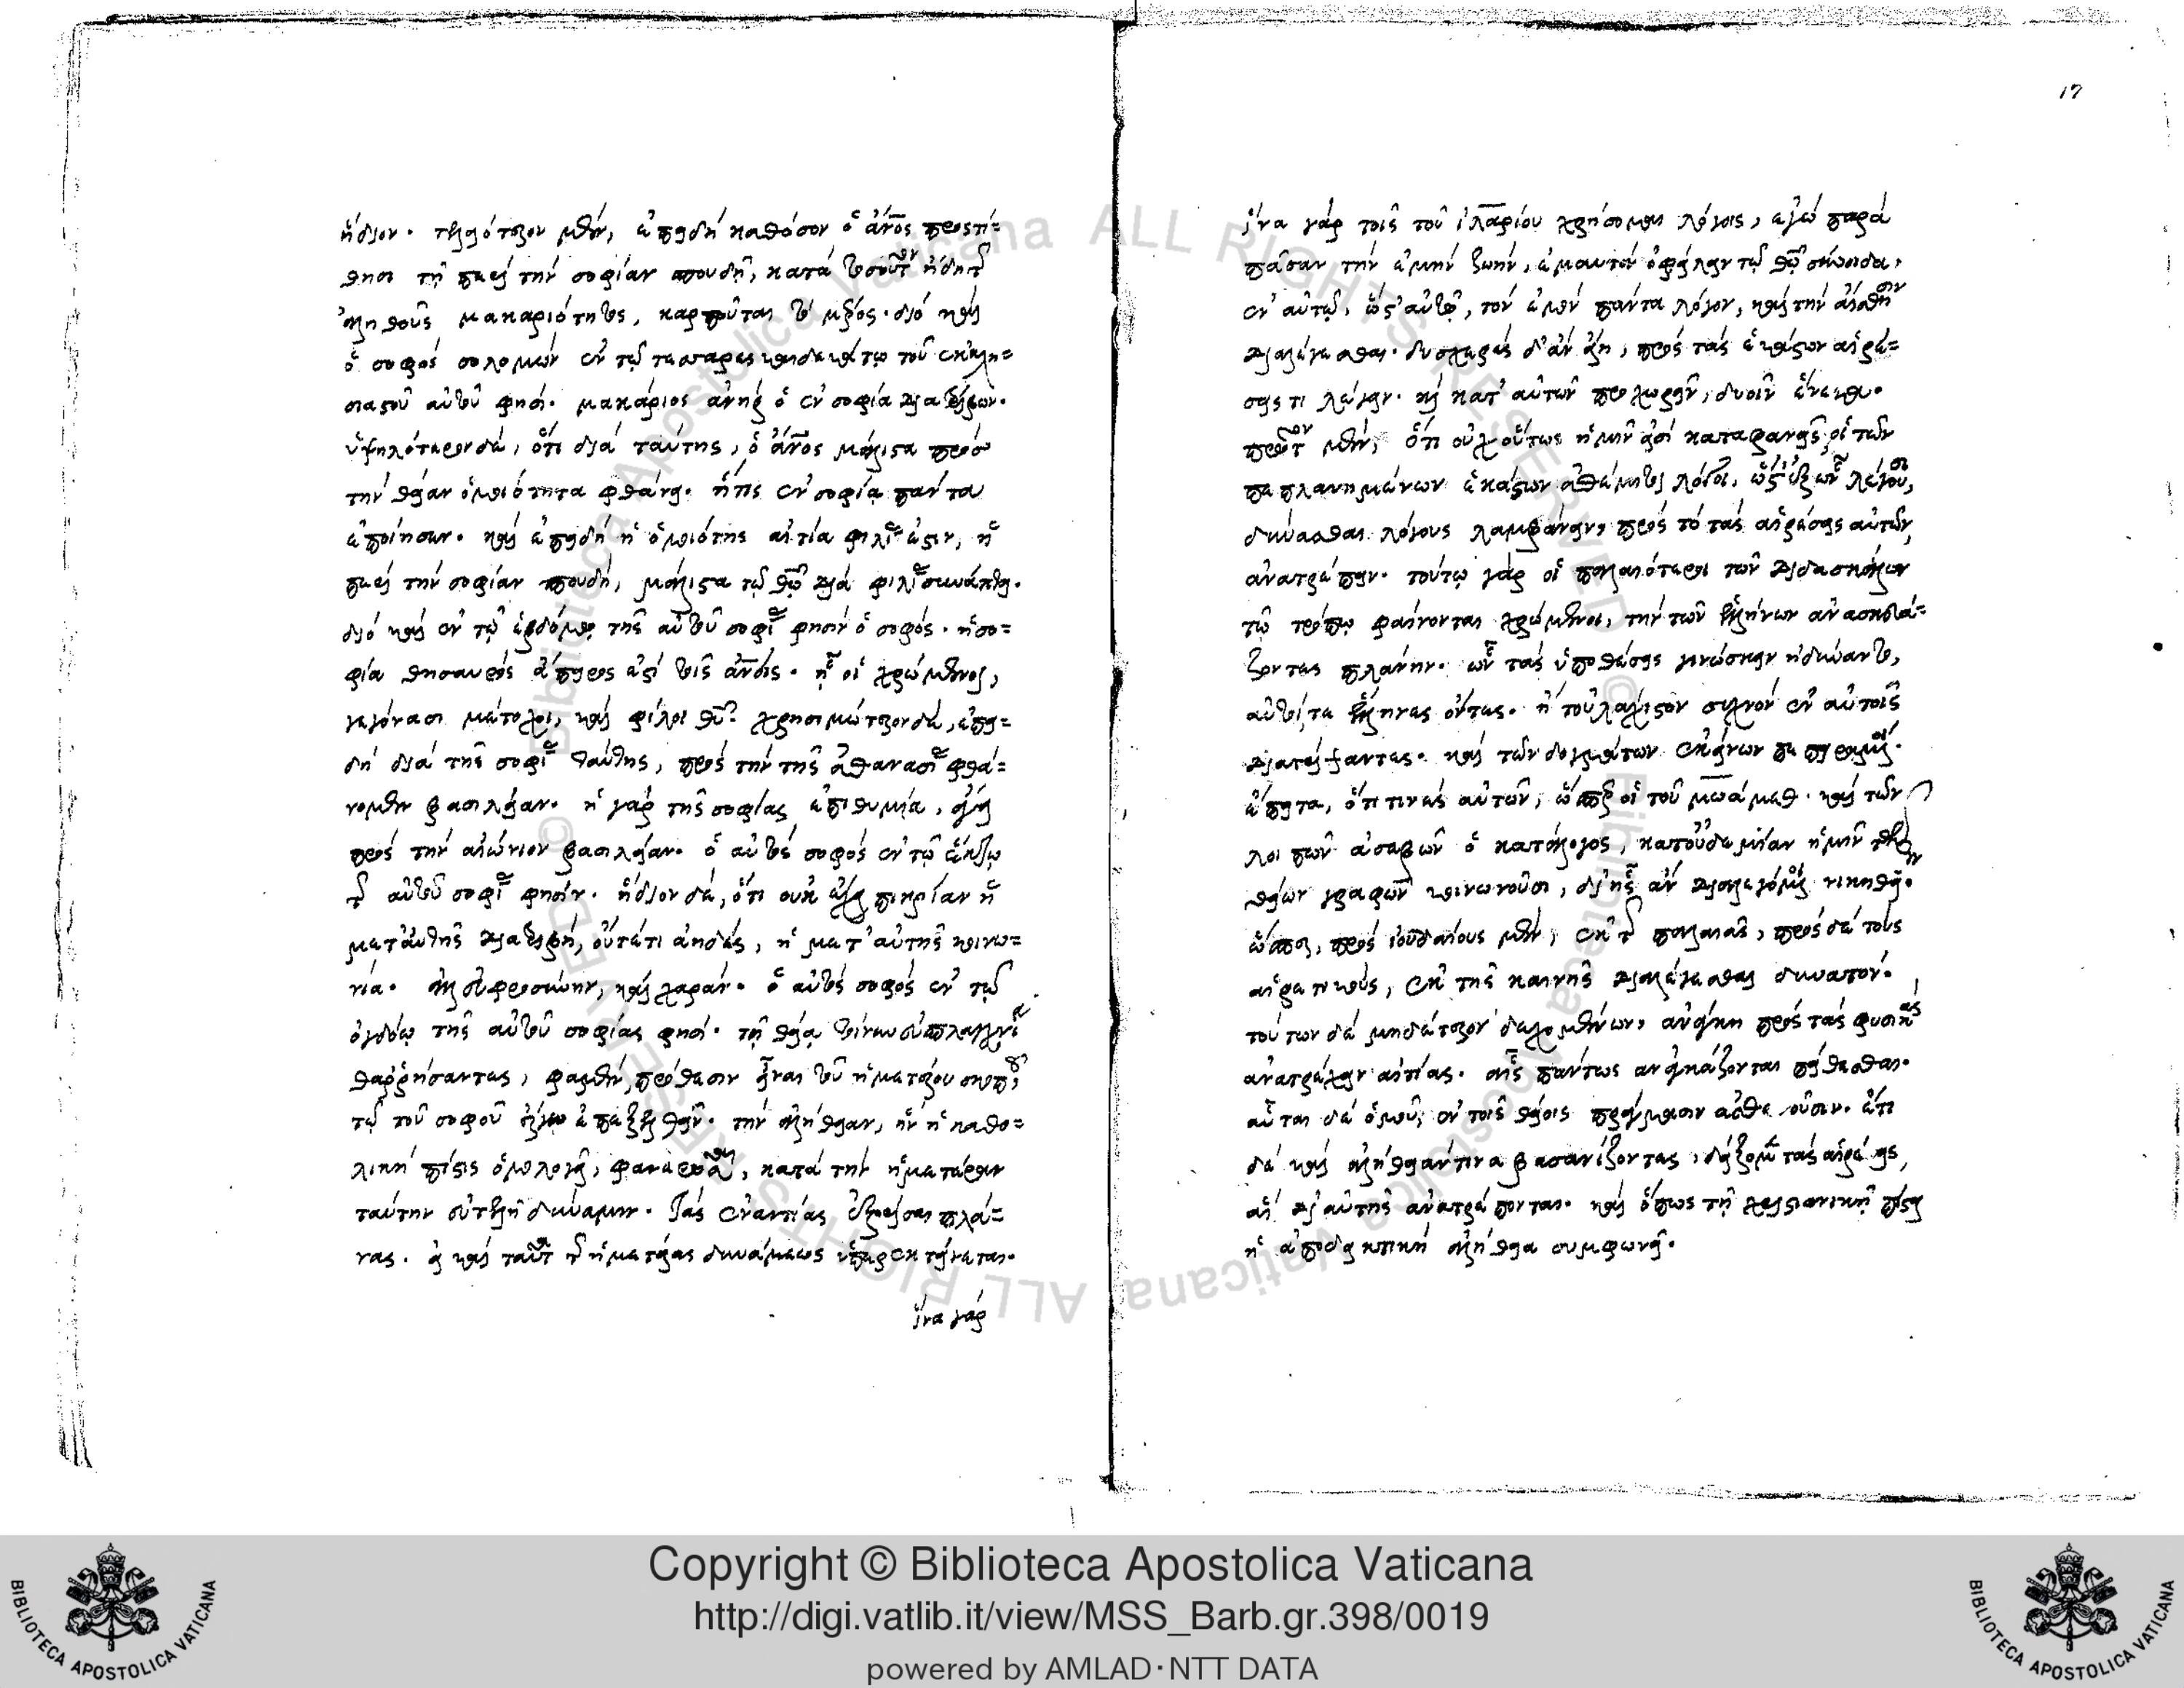 ἥδιον. τελειότερον μὲν, ἐπειδὴ καθόσον ὁ ἄνος προστί=
θησι τῇ περὶ τὴν σοφίαν σπουδῇ, κατὰ τοσοῦτον ἤδη τ
ἀληθοῦς μακαριότητος, καρποῦται τὸ μέρος. διὸ καὶ
ὁ σοφὸς σολομὼν ἐν τῷ τεσσαρεσκαιδεκάτῳ τοῦ ἐκκλη=
σιαστοῦ αὐτοῦ φησί. μακάριος ἀνὴρ ὁ ἐν σοφίᾳ διατρίβων.
ὑψηλότερον δὲ, ὅτι διὰ ταύτης, ὁ ἄνος μάλιστα πρὸς
τὴν θείαν ὁμοιότητα φθάνει. ἥτις ἐν σοφίᾳ πάντα
ἐποίησεν. καὶ ἐπειδὴ ἡ ὁμοιότης αἰτία φιλίας ἐστιν, ἡ
περὶ τὴν σοφίαν σπουδὴ, μάλιστα τῷ θῷ διὰ φιλίας συνάπτει.
διὸ καὶ ἐν τῷ ἑβδόμῳ τῆς αὐτοῦ σοφίας φησὶν ὁ σοφός. ἡ σο=
φία θησαυρὸς ἄπειρος ἐστὶ τοῖς ἀνοις. ᾗ οἱ χρώμενοι,
γεγόνασι μέτοχοι, καὶ φίλοι θυ. χρησιμώτερον δὲ, ἐπει=
δὴ διὰ τῆς σοφίας ταύτης, πρὸς τὴν τῆς ἀθανασίας φθά=
νομεν βασιλείαν. ἡ γὰρ τῆς σοφίας ἐπιθυμία, ἄγει
πρὸς τὴν αἰώνιον βασιλείαν. ὁ αὐτὸς σοφὸς ἐν τῷ ἕκτῳ
τ αὐτοῦ σοφίας φησίν. ἥδιον δὲ, ὅτι οὐκ ἔχει πικρίαν ἡ
μετ' αὐτῆς διατριβὴ, οὔτέ τι ἀηδὲς, ἡ μετ' αὐτῆς κοινω=
νία. ἀλλ' εὐφροσύνην, καὶ χαράν. ὁ αὐτὸς σοφὸς ἐν τῷ
ὀγδόῳ τῆς αὐτοῦ σοφίας φησί. τῇ θείᾳ τοίνυν εὐσπλαγχνίᾳ
θαρρήσαντες, φαμὲν, πρόθεσιν εἶναι τοῦ ἡμετέρου σκοποῦ,
τῷ τοῦ σοφοῦ ἔργῳ ἐπεξελθεῖν. τὴν ἀλήθειαν, ἣν ἡ καθο=
λικὴ πίστις ὁμολογεῖ, φανερωθῆναι, κατὰ τὴν ἡμετέραν
ταύτην εὐτελῆ δύναμιν. τὰς ἐναντίας ἐξαιρῆσαι πλά=
νας. εἰ καὶ ταῦτα τ ἡμετέρας δυνάμεως ὑπερεκτείνεται.
ἵνα γὰρ
17
ἵνα γὰρ τοῖς τοῦ ἱλαρίου χρήσομαι λόγοις, ἐγὼ παρὰ
πᾶσαν τὴν ἐμὴν ζωὴν, ἐμαυτὸν ὀφείλειν τῷ θῷ σύνοιδα,
ἐν αὐτῷ, ὥστ' αὐτὸν, τὸν ἐμὸν πάντα λόγον, καὶ τὴν αἴσθησιν
διαλέγεσθαι. δυσχερὲς δ' ἂν εἴη, πρὸς τὰς ἑκάστων αἱρέ=
σεις τι λέγειν. καὶ κατ' αὐτῶν προχωρεῖν, δυοῖν ἕνεκα.
πρῶτον μὲν, ὅτι οὐχ οὕτως ἡμῖν εἰσὶ καταφανεῖς, οἱ τῶν
πεπλανημένων ἑκάστων ἀθέμιτοι λόγοι, ὥστ' ἐξ ὧν λέγουσι,
δύνασθαι λόγους λαμβάνειν, πρὸς τὸ τὰς αἱρέσεις αὐτῶν,
ἀνατρέπειν. τούτῳ γὰρ οἱ παλαιότεροι τῶν διδασκάλων
τῷ τρόπῳ φαίνονται χρώμενοι, τὴν τῶν ἑλλήνων ἀνασκευά=
ζοντες πλάνην. ὧν τὰς ὑποθέσεις γινώσκειν ἠδύναντο,
αὐτοί τε ἕλληνες ὄντες. ἢ τοὐλάχιστον συχνὸν ἐν αὐτοῖς
διατρίψαντες. καὶ τῶν δογμάτων ἐκείνων πεπειραμένοι.
ἔπειτα, ὅτι τινὲς αὐτῶν, ὥσπερ οἱ τοῦ μωάμεθ. καὶ τῶν
λοιπῶν ἀσεβῶν ὁ κατάλογος, κατ' οὐδεμίαν ἡμῖν τῶν
θείων γραφῶν κοινωνοῦσι, δι' ἧς ἂν διαλεγόμενοι νικηθεῖεν.
ὥσπερ, πρὸς ἰουδαίους μὲν, ἐκ τ παλαιᾶς, πρὸς δὲ τοὺς
αἱρετικοὺς, ἐκ τῆς καινῆς διαλέγεσθαι δυνατόν.
τούτων δὲ μηδέτερον δεχομένων, ἀνάγκη πρὸς τὰς φυσικὰς
ἀνατρέχειν αἰτίας. αἷς πάντως ἀναγκάζονται πείθεσθαι.
αὗται δὲ ὁμοῦ, ἐν τοῖς θείοις πράγμασιν ἀσθενοῦσιν. ἔτι
δὲ καὶ ἀλήθειάν τινα βασανίζοντες, δείξομεν τὰς αἱρέσεις,
αἳ δι' αὐτῆς ἀνατρέπονται. καὶ ὅπως τῇ χριστιανικῇ πίστει
ἡ ἀποδεικτικὴ ἀλήθεια συμφωνεῖ.
Copyright © Biblioteca Apostolica Vaticana
http://digi.vatlib.it/view/MSS_Barb.gr.398/0019
powered by AMLAD·NTT DATA
BIBLIOTECA APOSTOLICA VATICANA
BIBLIOTECA APOSTOLICA VATICANA